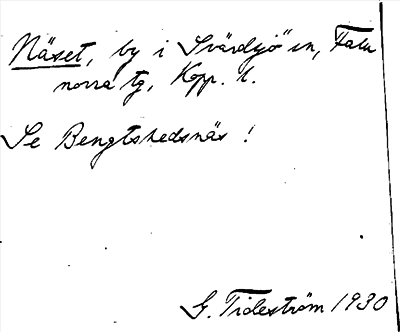 Näset, by i Svärdsjö sn, Falu
norra tg, Kopp. l.
Se Bengtshedsnäs!
G. Tideström 1930